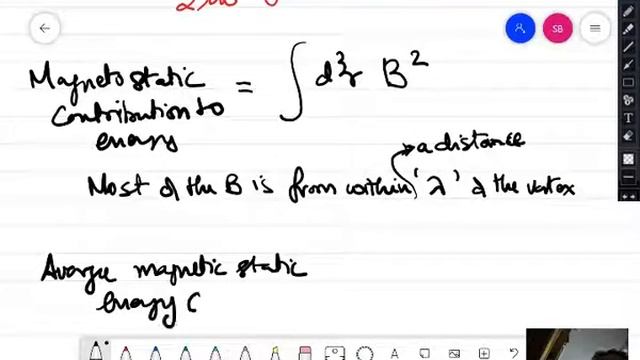 SB
Magnetostatic = ∫ d³r B²
Contribution to
energy
a distance
Most of the B is from within 'λ' of the vortex
Average magnetic static
energy C